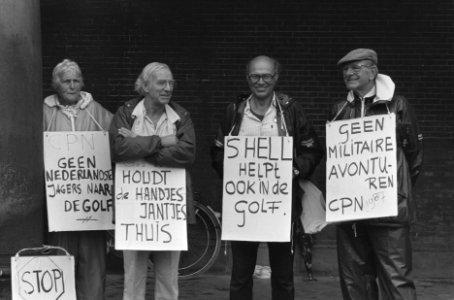 CPN
GEEN
NEDERLANDSE
JAGERS NAAR
DE GOLF
HOUDT
die HANDJES
JANTJES
THUIS
SHELL
HELPT
OOK iN de
GOLF.
GEEN
MILITAIRE
AVONTU-
REN
CPN
STOP